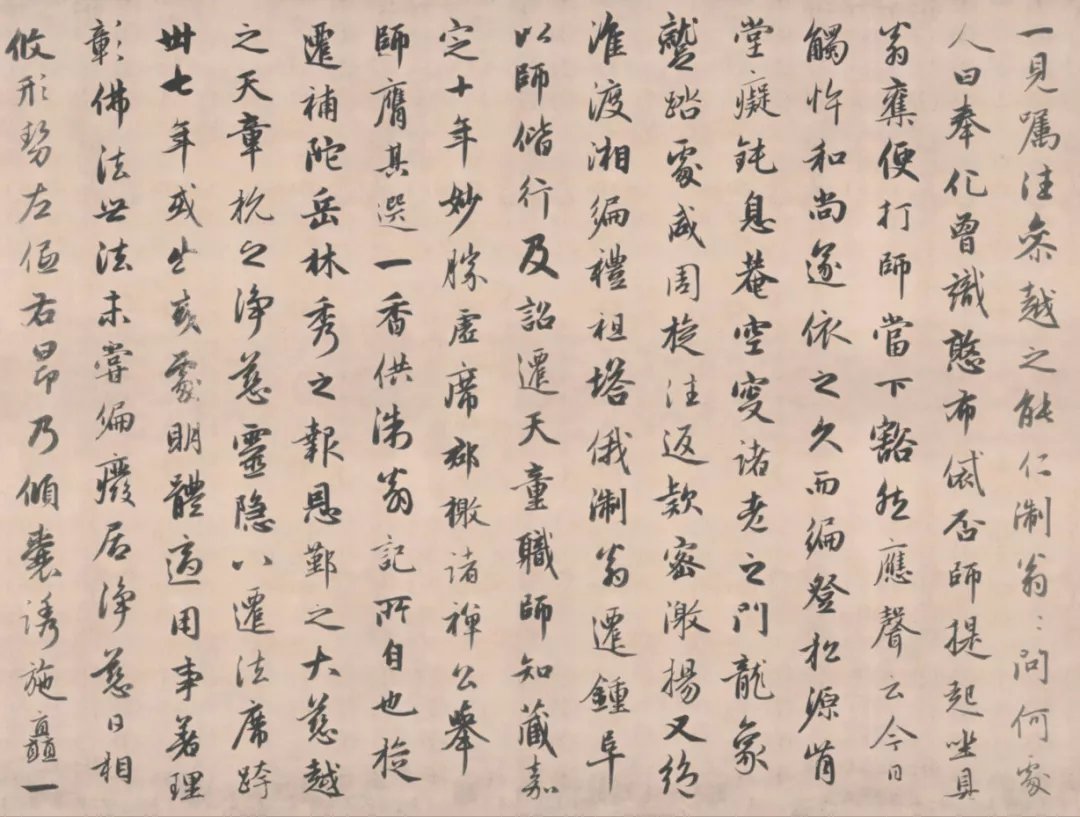 一見囑注參越之能仁淛翁〻問何處
人曰奉化曾識憨布袋否師提起坐具
翁奮便打師當下豁然應聲云今日
觸忤和尚遂依之久而徧登松源肯
堂癡鈍息菴空叟諸老之門龍象
蹵踏處咸周旋往返款密激揚又絶
淮渡湘徧禮祖塔俄淛翁遷鍾阜
以師偕行及詔遷天童職師知藏嘉
定十年妙勝虛席郡檄諸禪公舉
師膺其選一香供淛翁記所自也旋
遷補陀岳林秀之報恩鄞之大慈越
之天章杭之淨慈靈隱八遷法席跨
卅七年或出或處明體適用事著理
彰佛法世法未嘗偏廢居淨慈日相
攸形勢左傴右昂乃傾囊誘施矗一